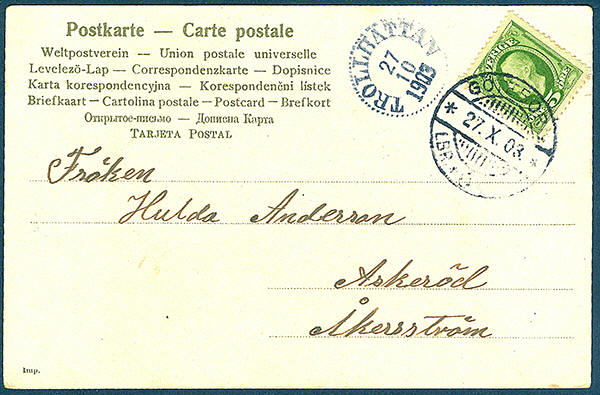 Postkarte — Carte postale
Weltpostverein — Union postale universelle
Levelező-Lap — Correspondenzkarte — Dopisnice
Karta korespondencyjna — Korespondenční lístek
Briefkaart — Cartolina postale — Postcard — Brefkort
Открытое-письмо — Дописна Карта
TARJETA POSTAL
TROLLHÄTTAN
27
10
1903
SVERIGE
GÖTEBORG
* 27. X. 03. *
LBR.
Fröken
Hulda Anderson
Askeröd
Åkersström
Imp.